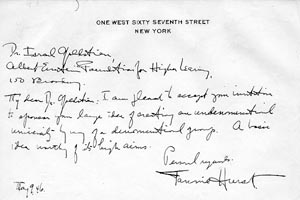 ONE WEST SIXTY SEVENTH STREET
NEW YORK
Dr. Israel Goldstein,
Albert Einstein Foundation for Higher Learning,
150 Broadway
My dear Dr. Goldstein: I am pleased to accept your invitation
to sponsor your large idea of creating an undenominational
university by way of a denominational group. A basic
idea worthy of its high aims.
Personal regards,
Fannie Hurst
May 9, 46.